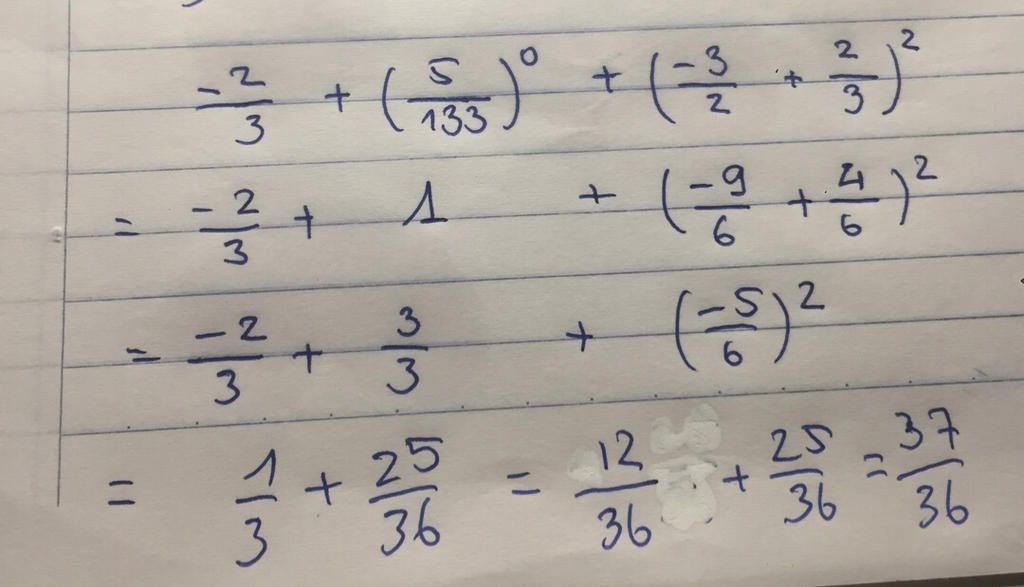 -2/3 + (5/133)^0 + (-3/2 + 2/3)^2
= -2/3 + 1 + (-9/6 + 4/6)^2
= -2/3 + 3/3 + (-5/6)^2
= 1/3 + 25/36 = 12/36 + 25/36 = 37/36